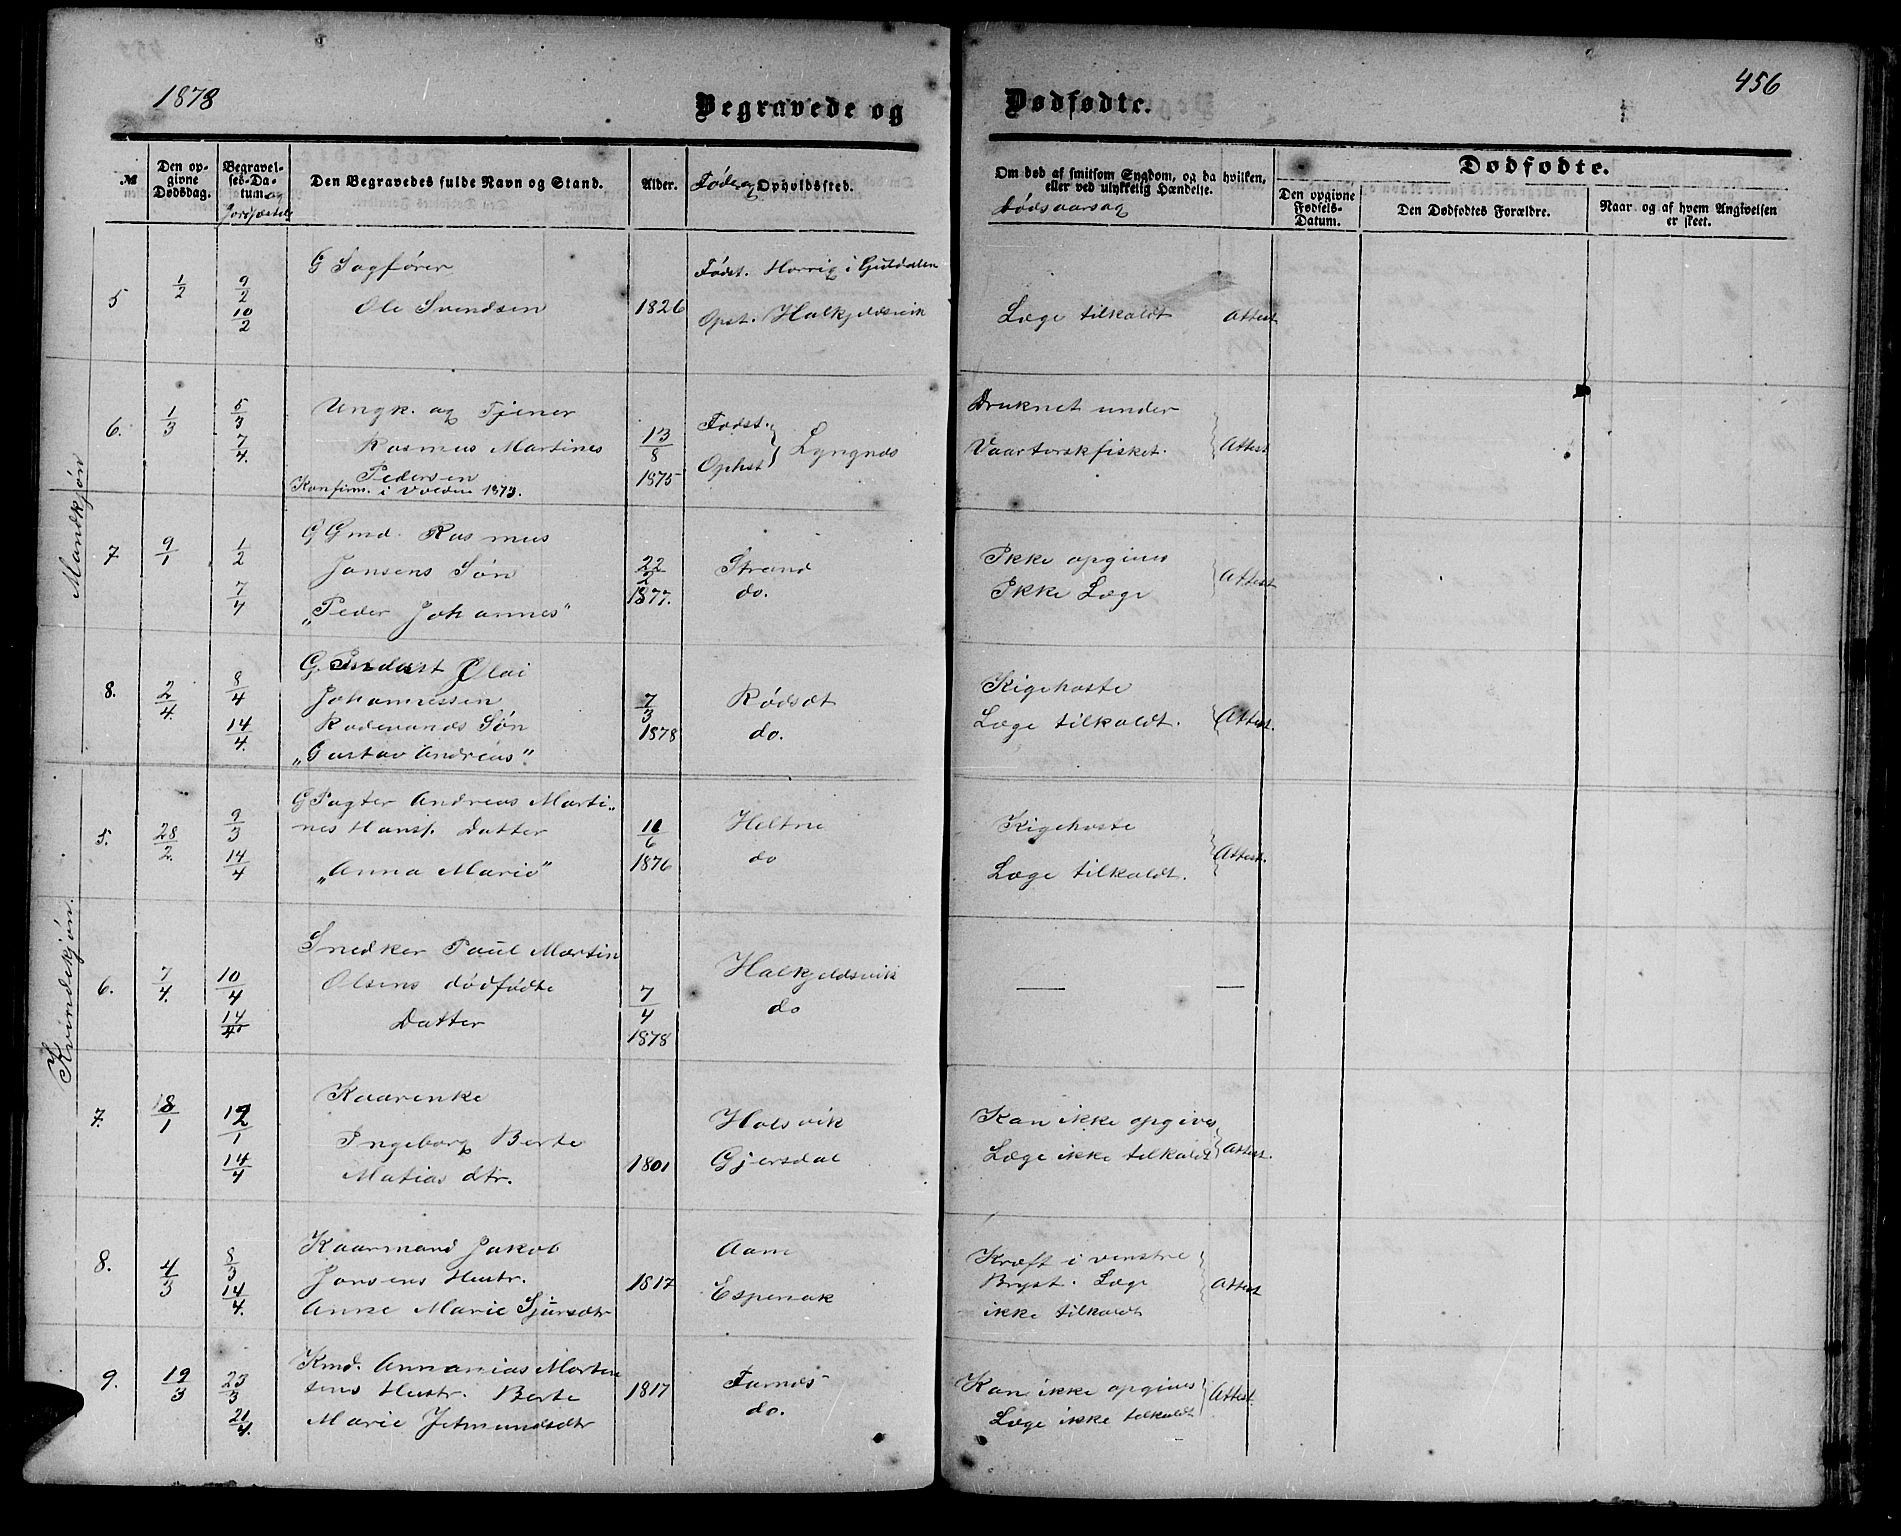 1878
Begravede og
Dødfødte.
456
№
Den opgivne Dødsdag.
Begravelses-Datum og Jordfæstels
Den Begravedes fulde Navn og Stand.
Alder.
Føde og Opholdssted.
Om død af smitsom Sygdom, og da hvilken, eller ved ulykkelig Hændelse.
Dødsaarsag
Dødfødte.
Den opgivne Fødsels-Datum.
Den Dødfødtes Forældre.
Naar og af hvem Angivelsen er skeet.
Mandkjøn
5 1/2 9/2 10/2
G Sagfører
Ole Svendsen
1826
Fødst. Horrig i Guldalen
Opst. Halkjeldsvik
Læge tilkaldt Attest
6. 1/3 5/3 7/4.
Ungk. og Tjener
Rasmus Martines
Pedersen
Konfirm. i Volden 1873.
13/8 1875
Fødst.
Ophst } Lyngnes
Druknet under
Vaartorskfisket. Attest
7 9/1 1/2 7/4
G Gmd. Rasmus
Jansens Søn
„Peder Johannes"
22/2 1877.
Strand
do.
Ikke opgives
Ikke Læge Attest
8. 2/4. 8/4 14/4.
G. Inderst Olai
Johannessen
Rødevands Søn
„Gustav Andreas".
7/3 1878
Rødsæt
do.
Kigehoste
Læge tilkaldt. Attest.
Kvindekjøn.
5. 28/2. 9/3 14/4
G Pagter Andreas Marti-
nes Hansf. Datter
„Anna Marie"
11/6 1876
Heltne
do
Kigehoste
Læge tilkaldt. Attest.
6. 7/4. 10/4 14/4
Snedker Paul Martin
Olsens dødfødte
Datter
7/4 1878
Halkjeldsvik
do
— —
7. 18/1 12/1 14/4
Kaarenke
Ingeborg Berte
Matias dtr.
1801
Halsvik
Gjersdal
Kan ikke opgives
Læge ikke tilkaldt Attest.
8. 4/3 8/3 14/4.
Kaarmand Jakob
Jansens Hustr.
Anne Marie Sjursdtr
1817
Aam
Espenak
Kræft i venstre
Bryst. Læge
ikke tilkaldt
Attest
9. 19/3 23/3 21/4.
Kmd. Annanias Marten
sens Hustr. Berte
Marie Jetmundsdtr
1817
Furnes
do.
Kan ikke opgives
Læge ikke tilkaldt
Attest.